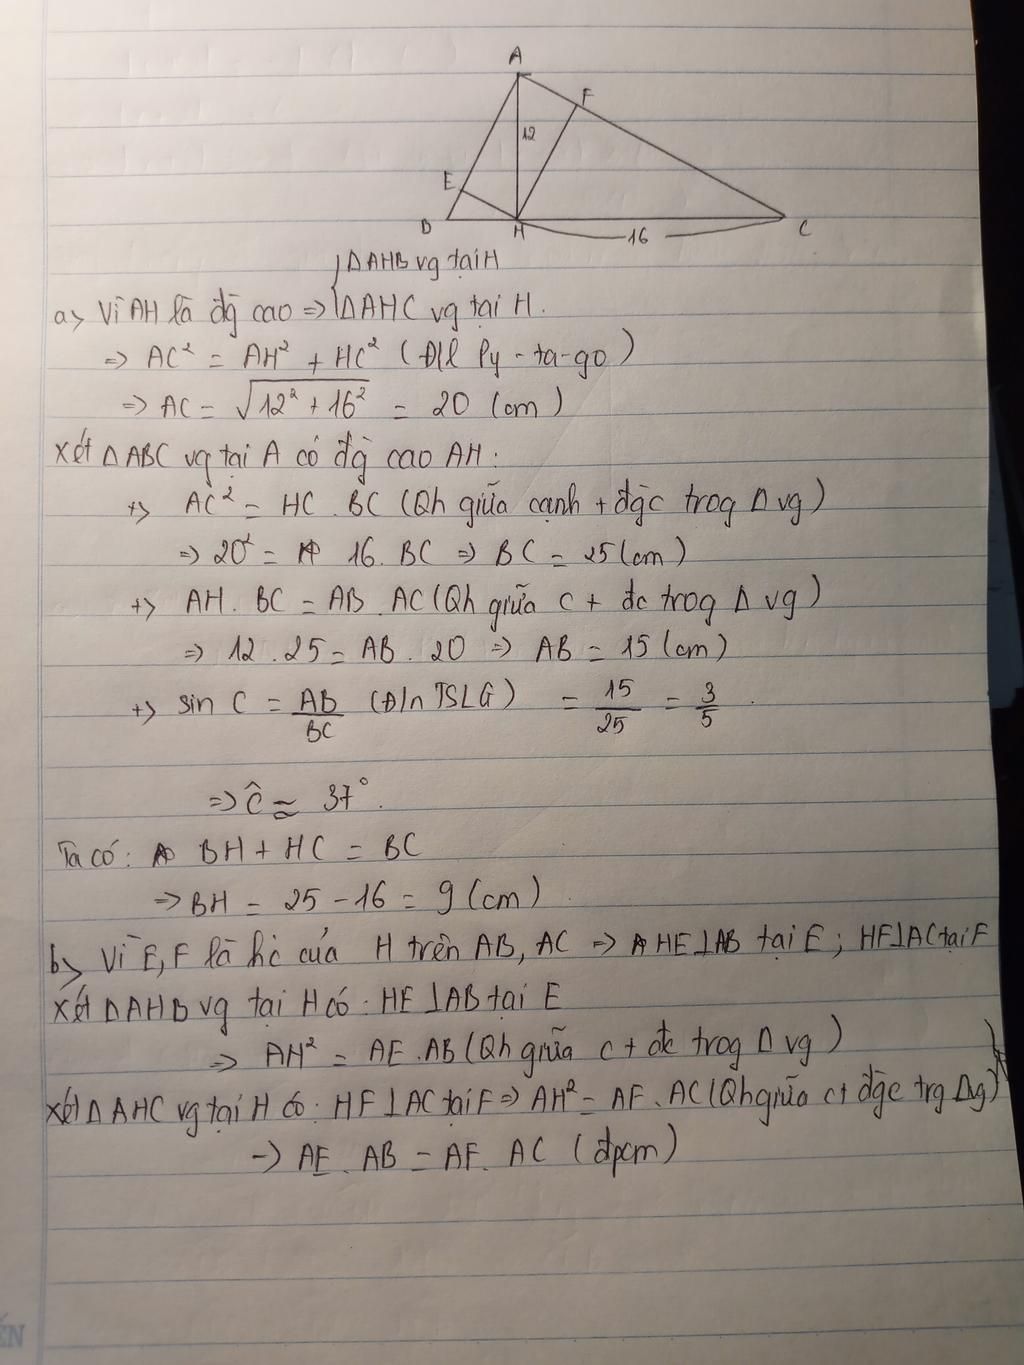 A
F
12
E
B
H
16
C
ΔAHB vg tại H
a> Vì AH là đg cao => ΔAHC vg tại H.
=> AC² = AH² + HC² (Đ/l Py-ta-go)
=> AC = √12² + 16² = 20 (cm)
Xét ΔABC vg tại A có đg cao AH:
+> AC² = HC . BC (Qh giữa cạnh + đgc trog Δ vg)
=> 20² = 16. BC => BC = 25 (cm)
+> AH. BC = AB. AC (Qh giữa c + đc trog Δ vg)
=> 12 . 25 = AB . 20 => AB = 15 (cm)
+> sin C = AB/BC (Đ/n TSLG) = 15/25 = 3/5
=> Ĉ ≈ 37°.
Ta có: BH + HC = BC
=> BH = 25 - 16 = 9 (cm)
b> Vì E, F là hc của H trên AB, AC => HE⊥AB tại E; HF⊥AC tại F
Xét ΔAHB vg tại H có: HE⊥AB tại E
=> AH² = AE.AB (Qh giữa c + đc trog Δ vg)
Xét ΔAHC vg tại H có: HF⊥AC tại F => AH² = AF.AC (Qh giữa c + đgc trg Δvg)
-> AE. AB = AF. AC (đpcm)
ẾN